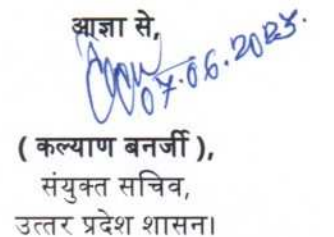 आज्ञा से,
07.06.2023.
( कल्याण बनर्जी ),
संयुक्त सचिव,
उत्तर प्रदेश शासन।